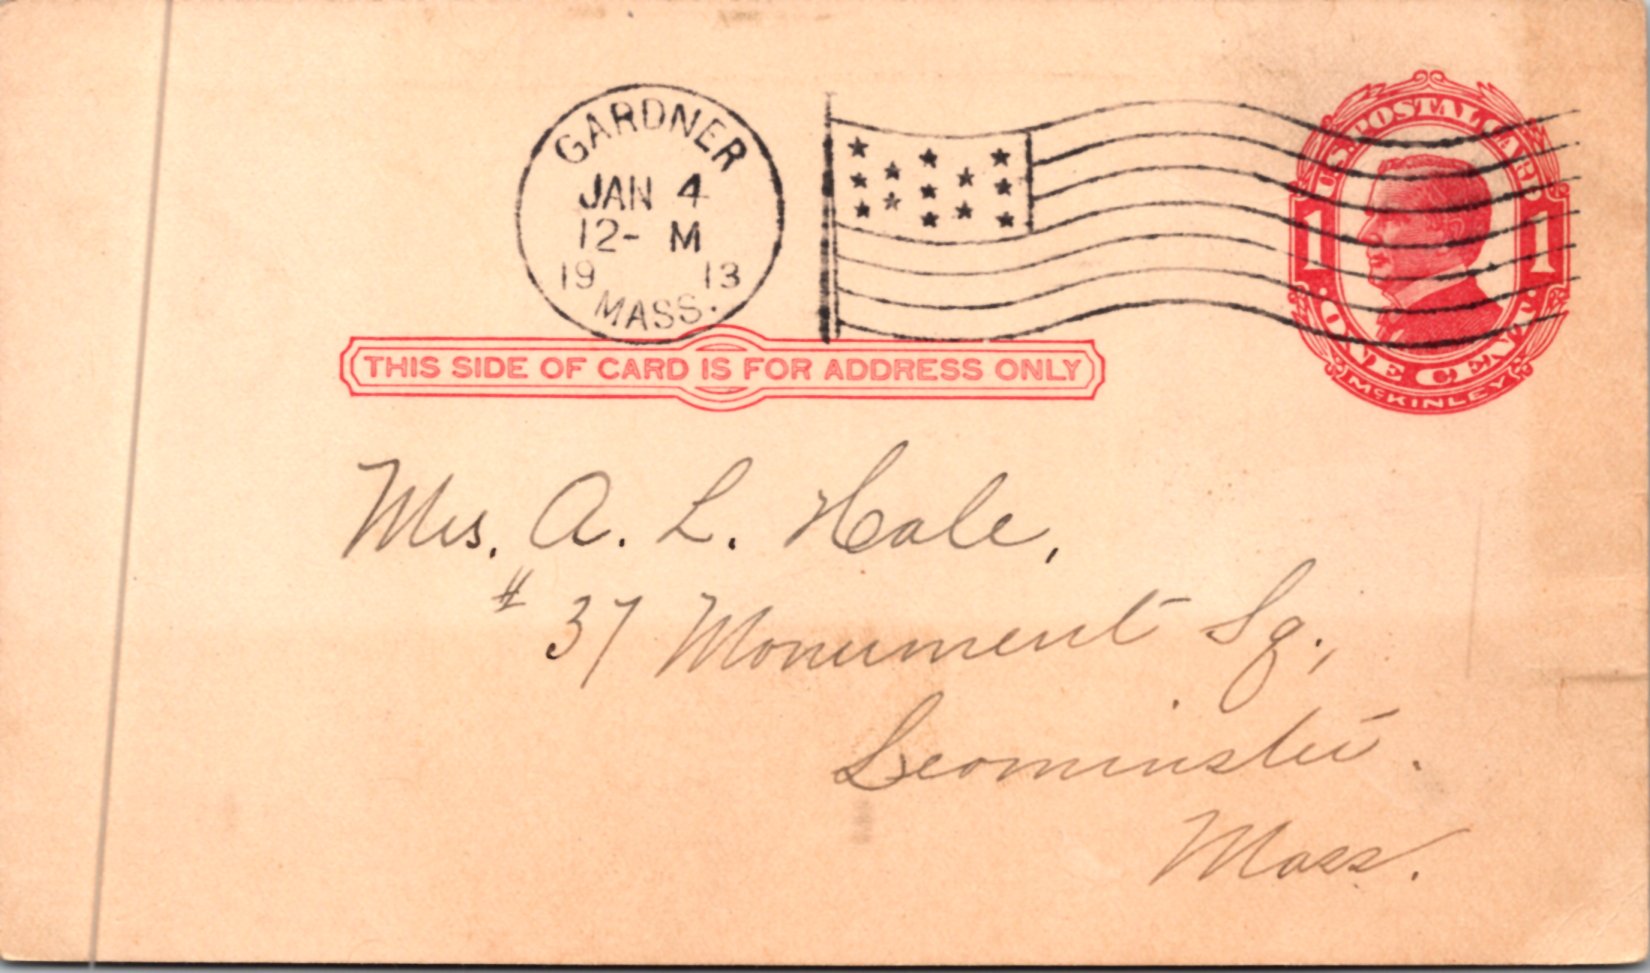 GARDNER
JAN 4
12- M
19 13
MASS.
U.S. POSTAL CARD
1 1
· ONE CENT ·
McKINLEY
THIS SIDE OF CARD IS FOR ADDRESS ONLY
Mrs. A. L. Hale,
# 37 Monument Sq.,
Leominster.
Mass.